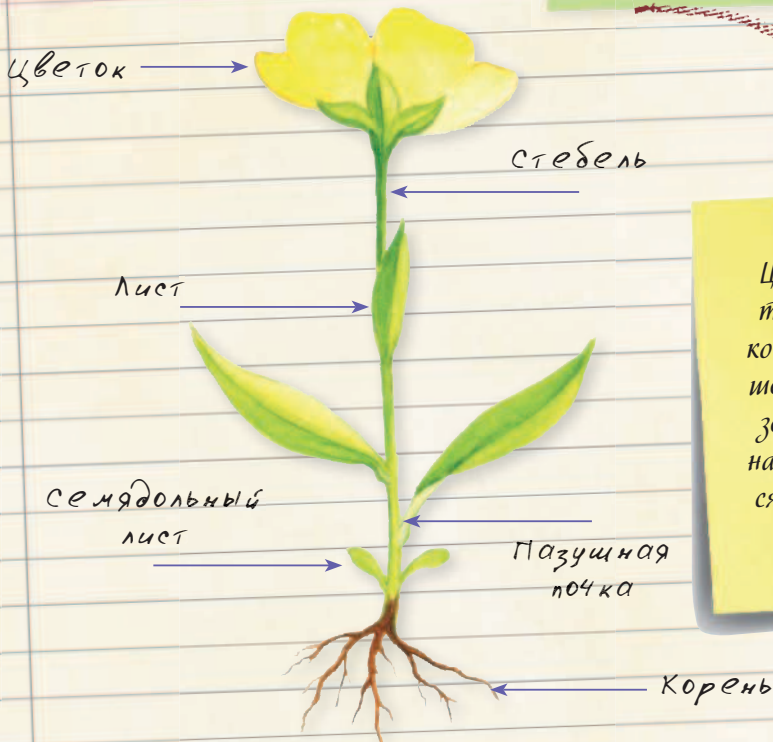 Цветок
Стебель
Лист
Семядольный
лист
Пазушная
почка
Корень